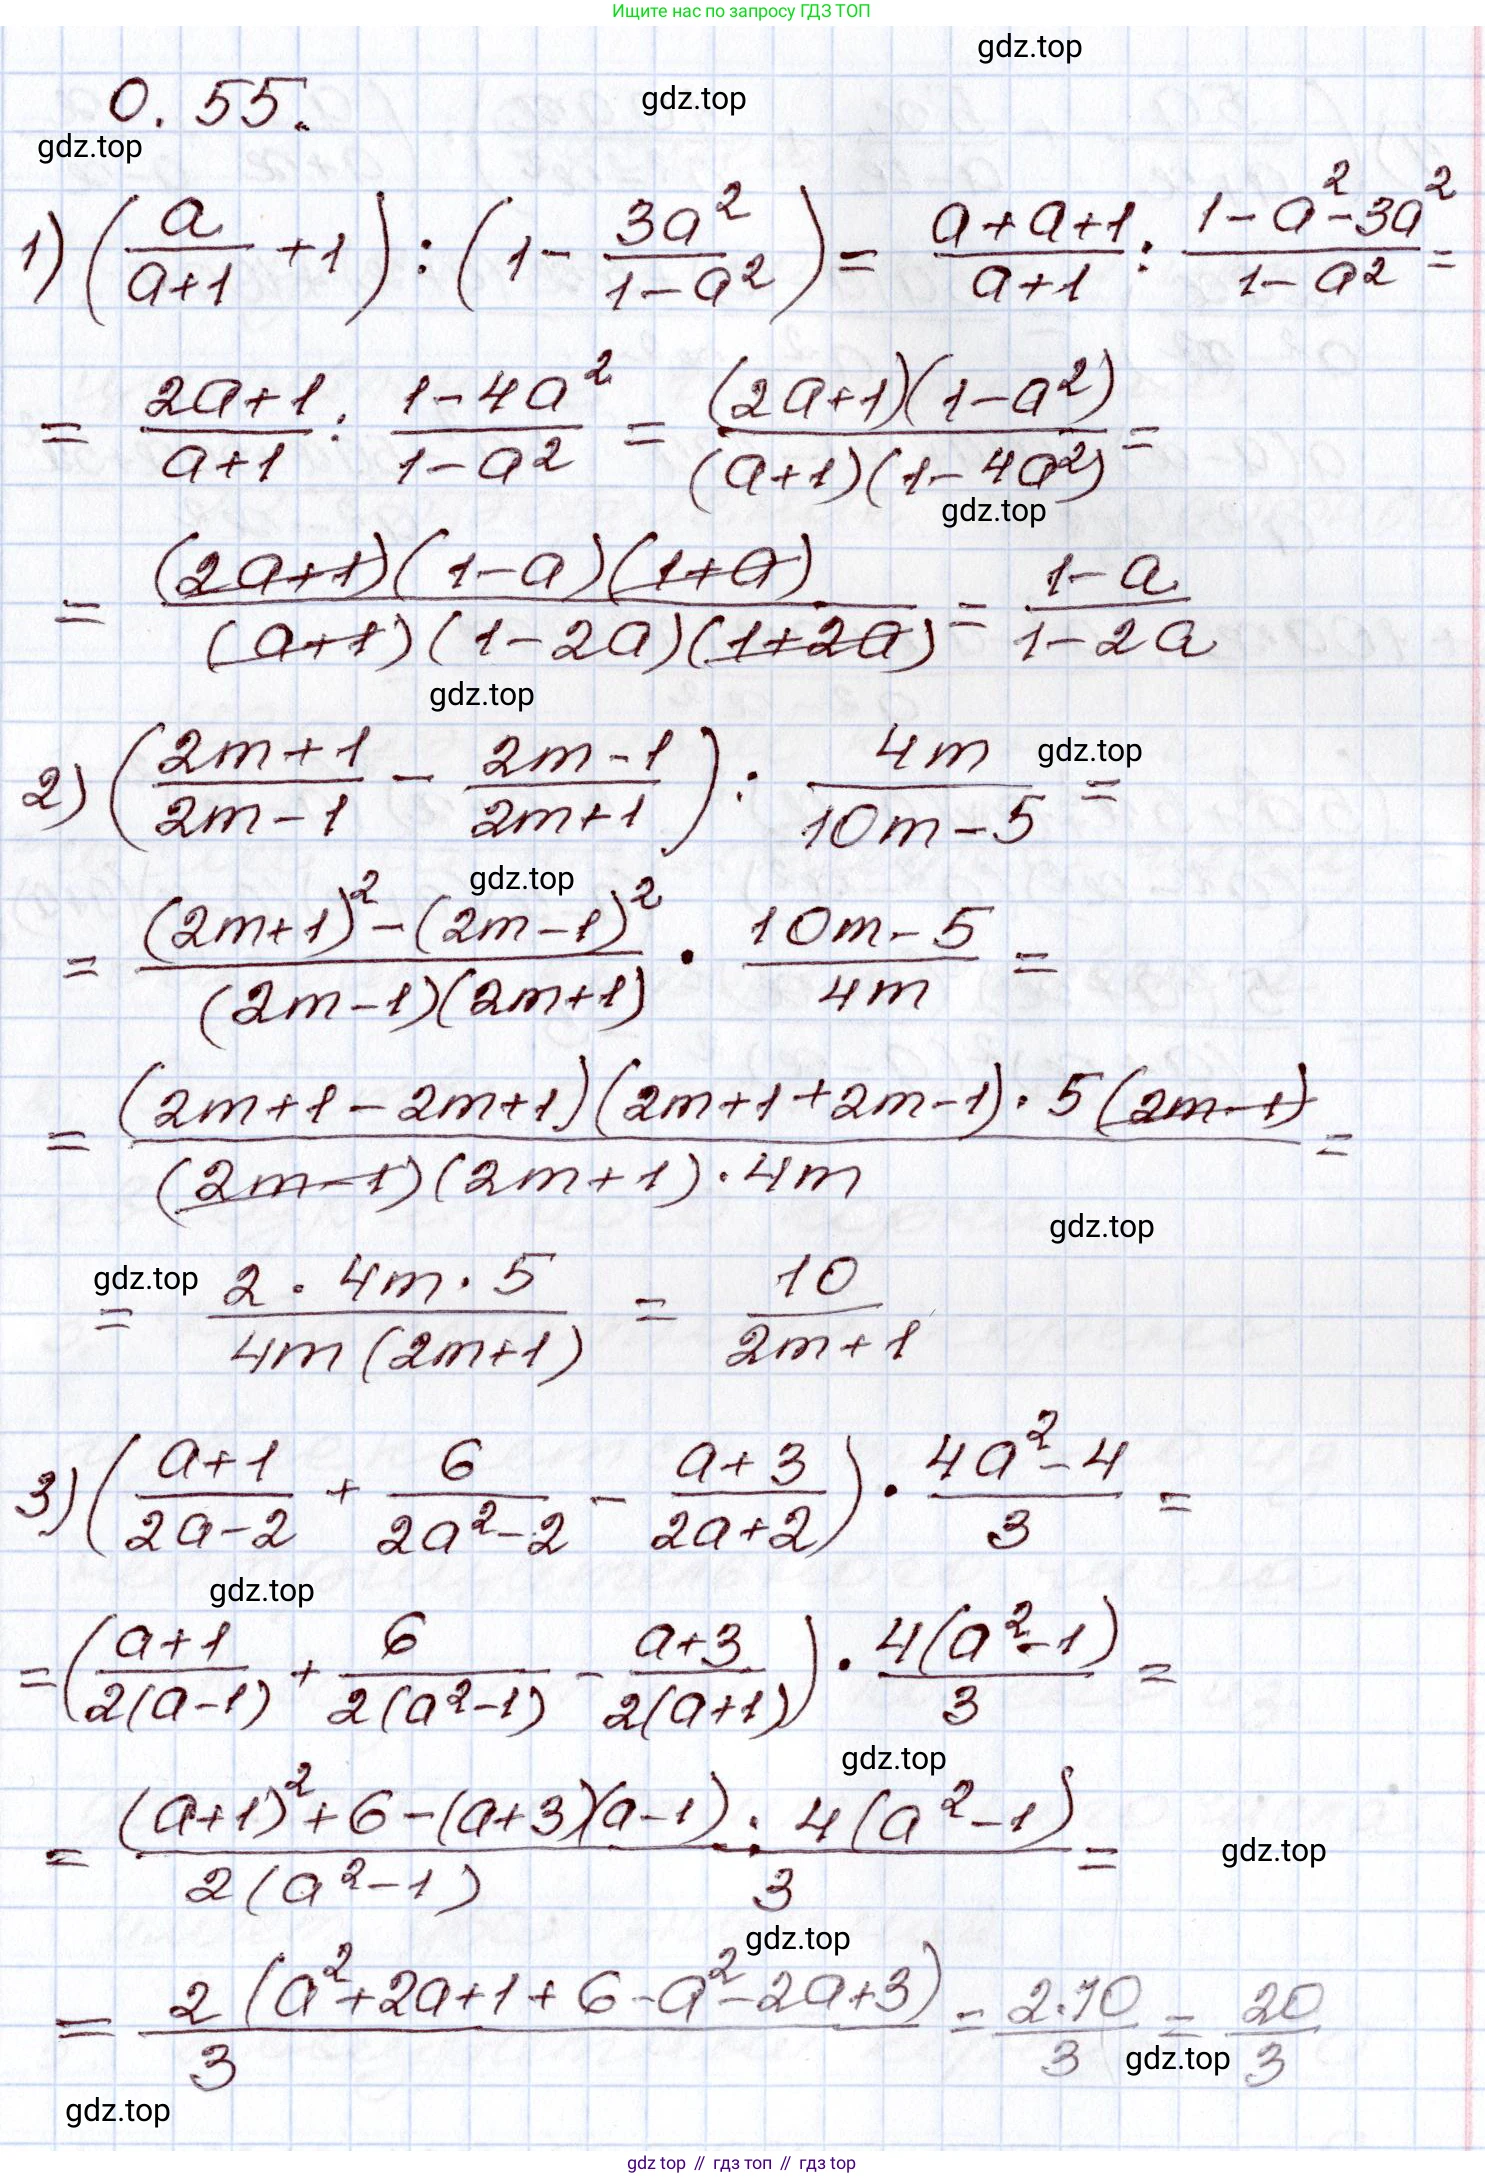 Ищите нас по запросу ГДЗ ТОП
gdz.top
gdz.top
0.55.
gdz.top
1) (a/(a+1) + 1) : (1 - 3a²/(1-a²)) = (a+a+1)/(a+1) : (1-a²-3a²)/(1-a²) =
= (2a+1)/(a+1) : (1-4a²)/(1-a²) = ((2a+1)(1-a²))/((a+1)(1-4a²)) =
gdz.top
= ((2a+1)(1-a)(1+a))/((a+1)(1-2a)(1+2a)) = (1-a)/(1-2a)
gdz.top
2) ((2m+1)/(2m-1) - (2m-1)/(2m+1)) : 4m/(10m-5) =
gdz.top
gdz.top
= ((2m+1)²-(2m-1)²)/((2m-1)(2m+1)) · (10m-5)/4m =
= ((2m+1-2m+1)(2m+1+2m-1)·5(2m-1))/((2m-1)(2m+1)·4m) =
gdz.top
gdz.top
= (2·4m·5)/(4m(2m+1)) = 10/(2m+1)
3) ((a+1)/(2a-2) + 6/(2a²-2) - (a+3)/(2a+2)) · (4a²-4)/3 =
gdz.top
= ((a+1)/(2(a-1)) + 6/(2(a²-1)) - (a+3)/(2(a+1))) · (4(a²-1))/3 =
gdz.top
= ((a+1)²+6-(a+3)(a-1))/(2(a²-1)) · (4(a²-1))/3 =
gdz.top
gdz.top
= (2(a²+2a+1+6-a²-2a+3))/3 = (2·10)/3 = 20/3
gdz.top
gdz.top
gdz.top // гдз топ // гдз top